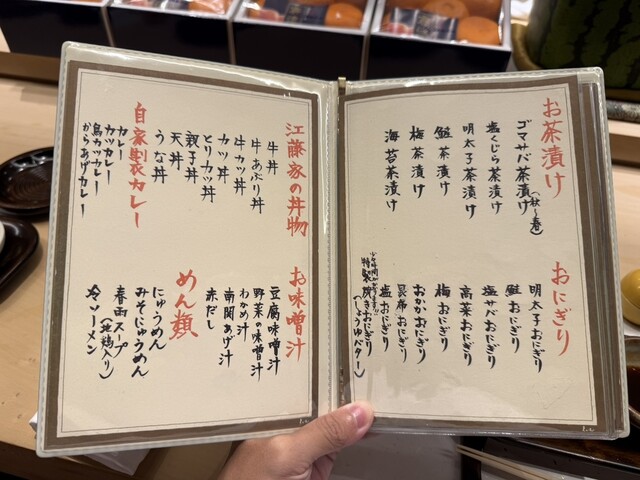 お茶漬け
ゴマサバ茶漬け(秋〜春)
塩くじら茶漬け
明太子茶漬け
鮭茶漬け
梅茶漬け
海苔茶漬け
おにぎり
明太子おにぎり
鮭おにぎり
塩サバおにぎり
高菜おにぎり
梅おにぎり
おかかおにぎり
昆布おにぎり
塩おにぎり
少々時間がかかります!!
特製焼きおにぎり
(しょうゆバター)
江藤家の丼物
牛丼
牛あぶり丼
牛カツ丼
カツ丼
とりカツ丼
親子丼
天丼
うな丼
自家製カレー
カレー
カツカレー
鳥カツカレー
からあげカレー
お味噌汁
豆腐味噌汁
野菜の味噌汁
わかめ汁
南関あげ汁
赤だし
めん類
にゅうめん
みそにゅうめん
春雨スープ
(地鶏入り)
冷ソーメン